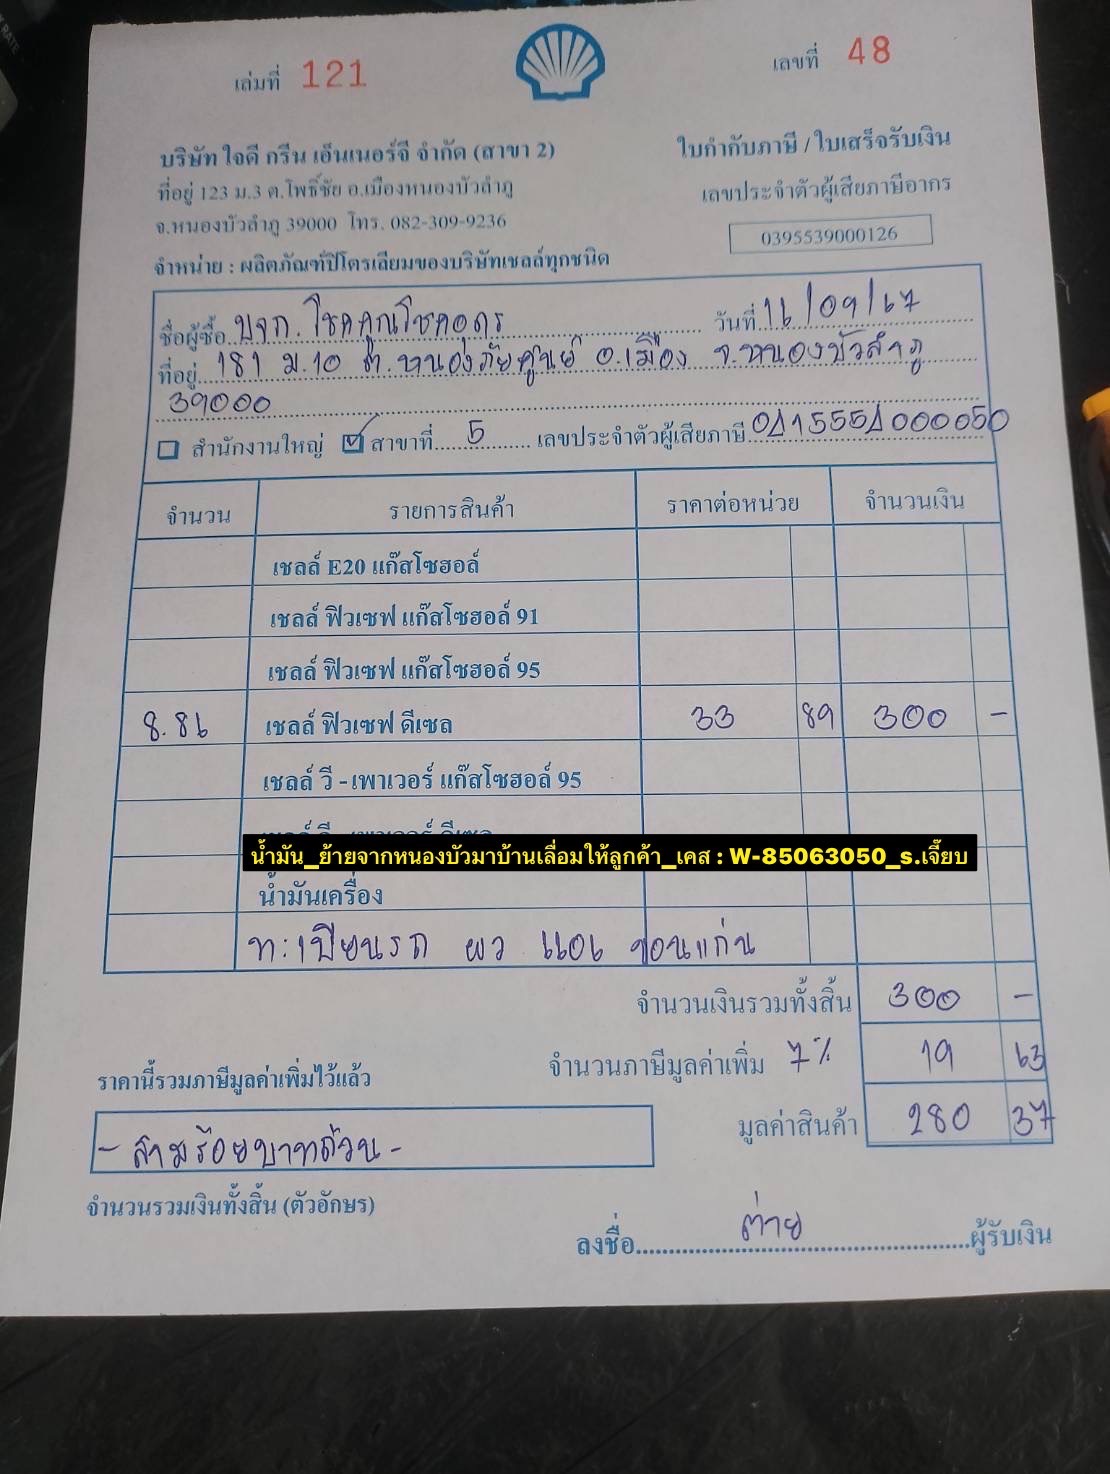 เล่มที่ 121
เลขที่ 48
บริษัท ใจดี กรีน เอ็นเนอร์จี จำกัด (สาขา 2)
ใบกำกับภาษี / ใบเสร็จรับเงิน
ที่อยู่ 123 ม.3 ต.โพธิ์ชัย อ.เมืองหนองบัวลำภู
เลขประจำตัวผู้เสียภาษีอากร
จ.หนองบัวลำภู 39000 โทร. 082-309-9236
0395539000126
จำหน่าย : ผลิตภัณฑ์ปิโตรเลียมของบริษัทเชลล์ทุกชนิด
ชื่อผู้ซื้อ บจก. โชคคูณโชคอุดร วันที่ 16/09/67
ที่อยู่ 181 ม.10 ต.หนองภัยศูนย์ อ.เมือง จ.หนองบัวลำภู
39000
สำนักงานใหญ่ สาขาที่ 5 เลขประจำตัวผู้เสียภาษี 0415554000050
จำนวน รายการสินค้า ราคาต่อหน่วย จำนวนเงิน
เชลล์ E20 แก๊สโซฮอล์
เชลล์ ฟิวเซฟ แก๊สโซฮอล์ 91
เชลล์ ฟิวเซฟ แก๊สโซฮอล์ 95
8.86 เชลล์ ฟิวเซฟ ดีเซล 33 89 300 -
เชลล์ วี - เพาเวอร์ แก๊สโซฮอล์ 95
น้ำมัน_ย้ายจากหนองบัวมาบ้านเลื่อมให้ลูกค้า_เคส : W-85063050_s.เจี๊ยบ
น้ำมันเครื่อง
ท:เบียนรถ ผว 4406 ขอนแก่น
จำนวนเงินรวมทั้งสิ้น 300 -
ราคานี้รวมภาษีมูลค่าเพิ่มไว้แล้ว
จำนวนภาษีมูลค่าเพิ่ม 7% 19 63
มูลค่าสินค้า 280 37
- สามร้อยบาทถ้วน -
จำนวนรวมเงินทั้งสิ้น (ตัวอักษร)
ลงชื่อ ต่าย ผู้รับเงิน